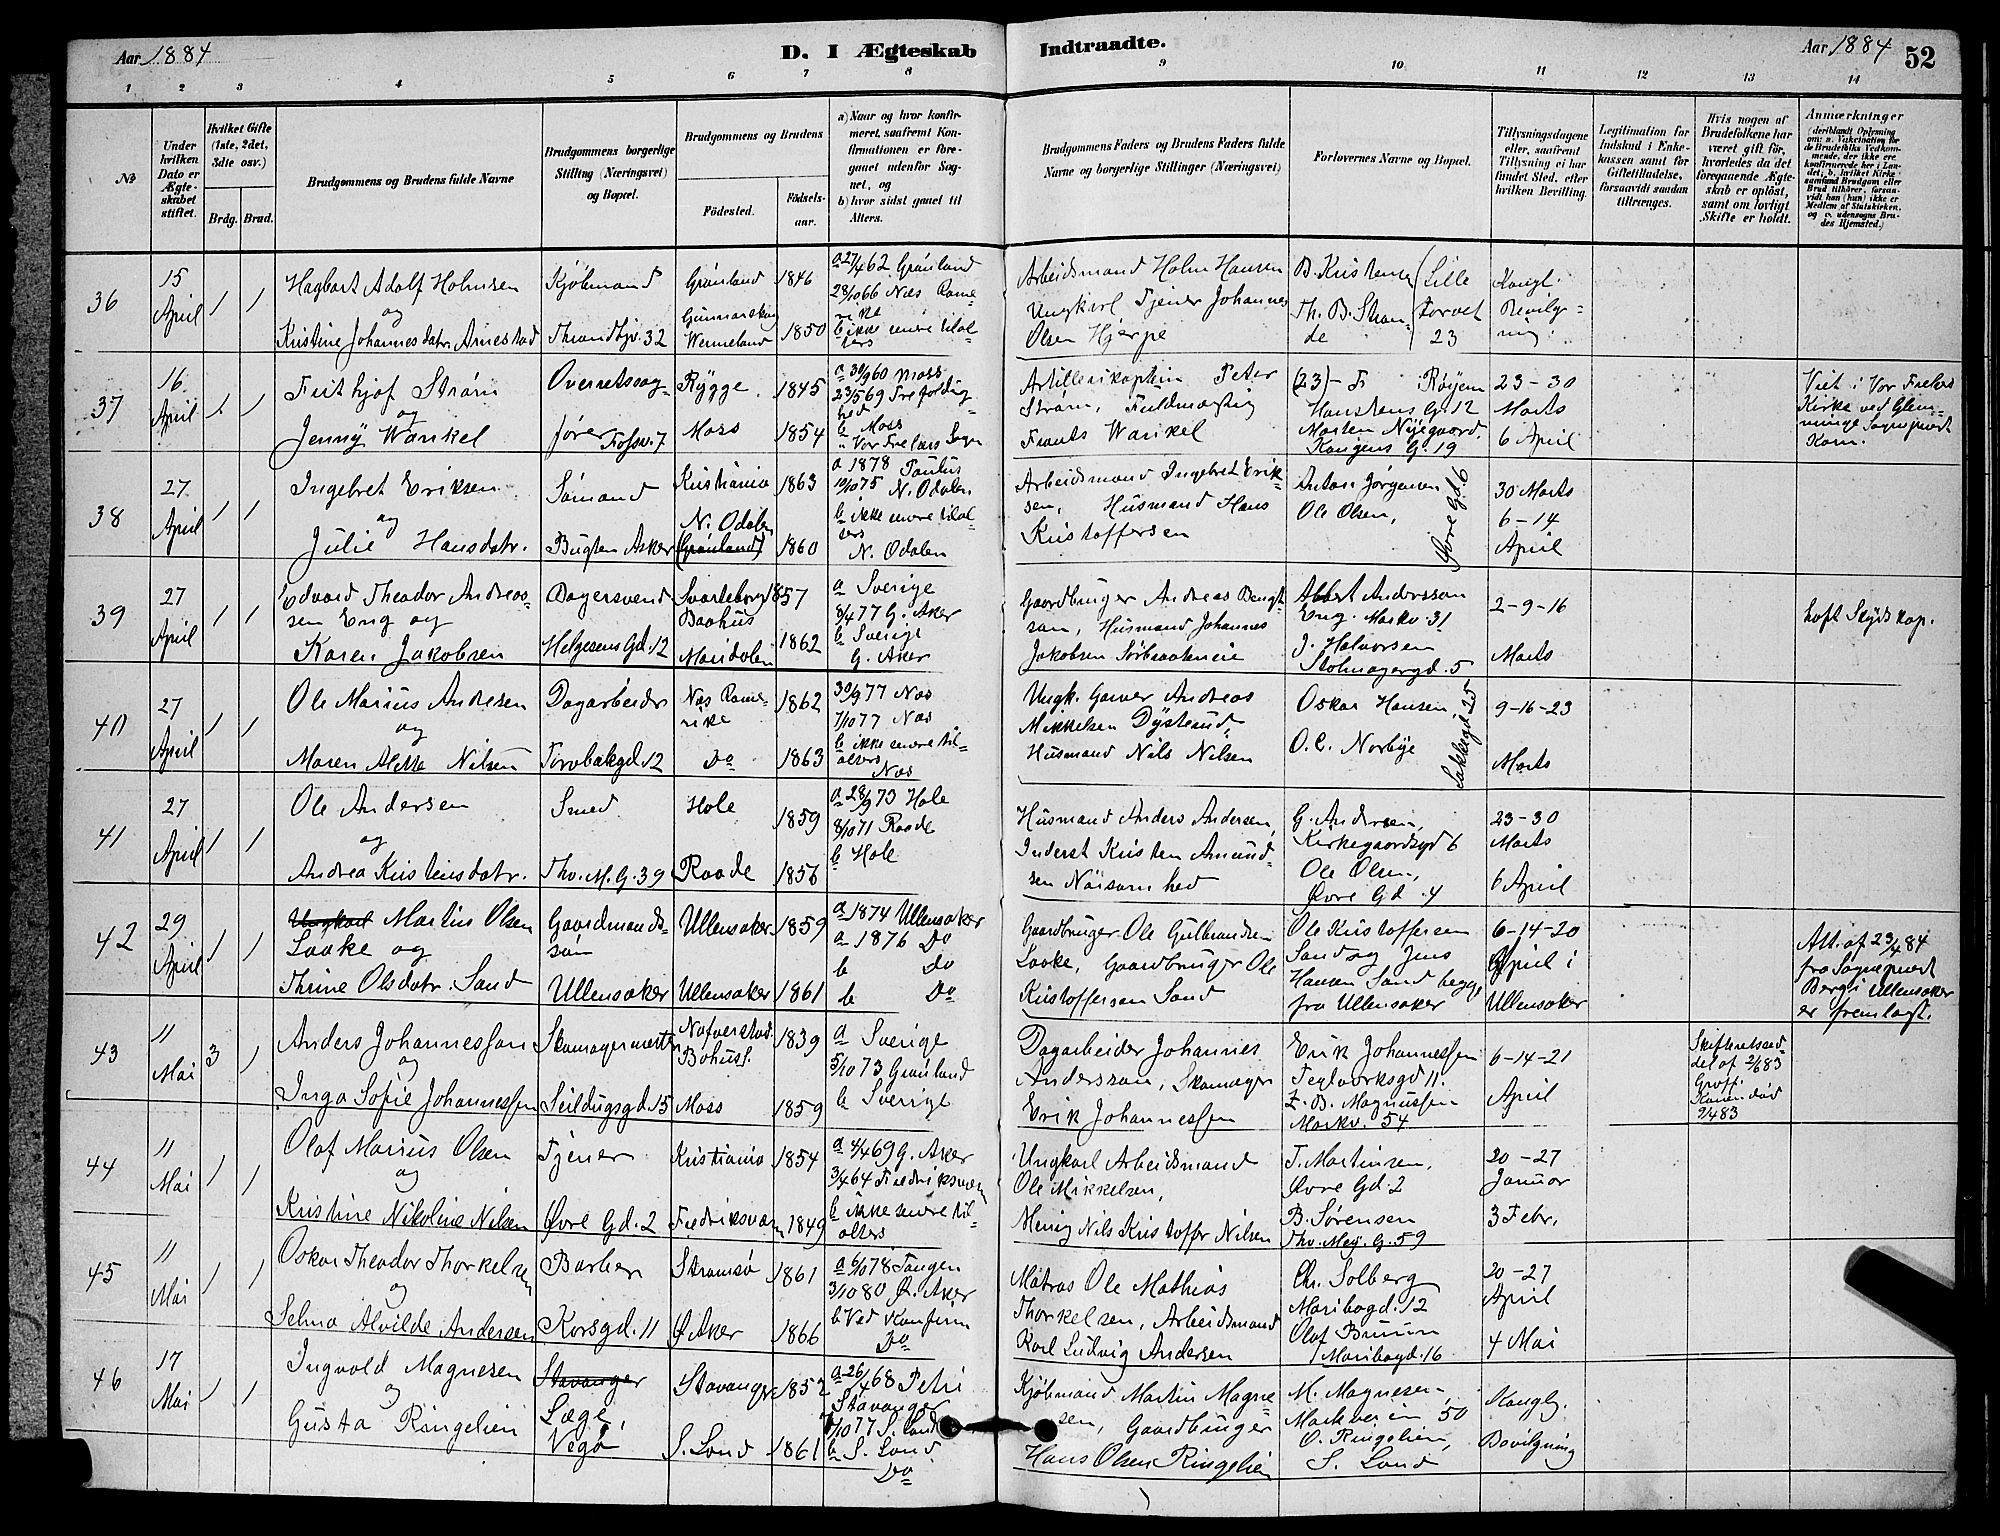 Aar 1884
D. I Ægteskab
Indtraadte.
Aar 1884
52
1 2 3 4 5 6 7 8 9 10 11 12 13 14
№
Under hvilken Dato er Ægteskabet stiftet.
Hvilket Gifte (1ste, 2det, 3die osv.)
Brdg. Brud.
Brudgommens og Brudens fulde Navne
Brudgommens borgerlige Stilling (Næringsvei) og Bopæl.
Brudgommens og Brudens
Fødested.
Fødselsaar.
a) Naar og hvor konfirmeret, saafremt Konfirmationen er foregaaet udenfor Sognet, og
b) hvor sidst gaaet til Alters.
Brudgommens Faders og Brudens Faders fulde Navne og borgerlige Stillinger (Næringsvei)
Forlovernes Navne og Bopæl.
Tillysningsdagene eller, saafremt Tillysning ei har fundet Sted, efter hvilken Bevilling.
Legitimation for Indskud i Enkekassen samt for Giftetilladelse, forsaavidt saadan tiltrænges.
Hvis nogen af Brudefolkene har været gift før, hvorledes da det foregaaende Ægteskab er opløst, samt om lovligt Skifte er holdt.
Anmærkninger
36
15 April
1 1
Hagbart Adolf Holmsen
og
Kristine Johannesdatr Arnestad
Kjøbmand
Throndhjv. 32
Grønland 1846
Gunnarskog Wermeland 1850
a 27/4 62 Grønland
28/10 66 Næs Romerike
b ikke senere tilalters
Arbeidsmand Holm Hansen
Ungkarl Tjener Johannes
Olsen Hjerpe
B. Kristense
Th. B. Strande
Lille Torvet 23
Kongl. Bevilgning
37
16 April
1 1
Frithjof Strøm
og
Jenny Wankel
Overretssagfører Fossv. 7
Rygge 1845
Moss 1854
a 30/9 60 Moss
23/5 69 Trefoldighed
b Moss
" Vor Frelsers Sogn
Artillerikaptein Peter
Strøm, Fuldmægtig
Frants Wankel
Hanstens G. 12
Morten Nyegaard
Kongens G. 19
23-30 Marts
6 April
Viet i Vor Frelsers
Kirke ved
38
27 April
1 1
Ingebret Eriksen
og
Julie Hansdatr.
Sømand
Bugten Asker
Kristiania 1863
N. Odalen
(Grønland) 1860
a 1878 Paulus
10/10 75 N. Odalen
b ikke senere tilalters
N. Odalen
Arbeidsmand Ingebret Eriksen, Husmand Hans
Kristoffersen
Anton Jørgensen
Ole Olsen,
Øvre Gd. 6
30 Marts
6-14
April
39
27 April
1 1
Edvard Theodor Andreassen Eng og
Karen Jakobsen
Bagersvend
Helgesens Gd. 12
Svarteborg Baahus 1857
Maridalen 1862
a Sverige
8/4 77 G. Aker
b Sverige
G. Aker
Gaardbruger Andreas Bengtson, Husmand Johannes
Jakobsen Sørbraateneie
Albert Anderssen
Eng. Markv. 31
J. Halvorsen
Stolmagergd. 5
2-9-16
Marts
40
27 April
1 1
Ole Marius Andresen
og
Maren Alette Nilsen
Dagarbeider
Torvbakgd. 12
Næs Romerike 1862
Do 1863
30/9 77 Næs
7/10 77 Næs
b ikke senere tilalters
Næs
Ungk. Garver Andreas
Mikkelsen Dysterud
Husmand Nils Nilsen
Oskar Hansen
O. C. Norbye
9-16-23
Marts
41
27 April
1 1
Ole Andersen
og
Andrea Kristensdatr.
Smed
Thv. M. G. 39
Hole 1859
Raade 1856
a 28/9 73 Hole
8/10 71 Raade
b Hole
Husmand Anders Andersen
Inderst Kristen Amundsen Nøisomhed
G. Andersen,
Kirkegaardsgd 6
Ole Olsen,
Øvre Gd. 4
23-30
Marts
6 April
42
29 April
1 1
Ungkarl Martin Olsen
Laake og
Thrine Olsdatr. Sand
Gaardmandssøn
Ullensaker
Ullensaker 1859
Ullensaker 1861
a 1874 Ullensaker
a 1876 Do
b Do
b Do
Gaardbruger Ole Gulbrandsen
Laake, Gaardbruger Ole
Kristoffersen Sand
Ole Kristoffersen
Sand og Jens
Hansen Sand begge
fra Ullensaker
6-14-20
April i
Ullensaker
Att. af 23/4 84
fra Sognepræst
Berg i Ullensaker
er fremlagt.
43
11 Mai
3 1
Anders Johannessen
og
Inga Sofie Johannessen
Skomagermester
Seildugsgd. 15
Nafverstad Bohusl. 1839
Moss 1859
a Sverige
5/10 73 Grønland
b Sverige
Dagarbeider Johannes
Anderssøn, Skomager
Erik Johannessen
Erik Johannessen
Teglverksgd 11.
Z. B. Magnussen
Markv. 54
6-14-21
April
Skifteretsseddel af 2/6 83
44
11 Mai
1 1
Olaf Marius Olsen
og
Kristine Nikoline Nilsen
Tjener
Øvre Gd. 2
Kristiania 1854
Fredriksværn 1849
a 4/4 69 G. Aker
3/4 64 Fredriksværn
b ikke senere tilalters
Ungkarl Arbeidsmand
Ole Mikkelsen,
Menig Nils Kristoffer Nilsen
T. Martinsen,
Øvre Gd. 2
B. Sørensen
Thv. Mey. G. 59
20-27
Januar
3 Febr.
45
11 Mai
1 1
Oskar Theodor Thorkelsen
og
Selma Alvilde Andersen
Barber
Korsgd. 11
Strømsø 1861
Ø. Aker 1866
a 6/10 78 Tangen
3/10 80 Ø. Aker
b Ved Konfirm
Do
Matros Ole Mathias
Thorkelsen, Arbeidsmand
Karl Ludvig Andersen
Chr. Solberg
Maribogd. 12
Olaf Bruun
Maribogd. 16
20-27
April
4 Mai
46
17 Mai
1 1
Ingvald Magnesen
og
Gusta Ringelien
Stavanger
Læge,
Vegø
Stavanger 1852
S. Land 1861
a 26/4 68 Petri
Stavanger
7/10 77 S. Land
b S. Land
Do
Kjøbmand Martin Magnesen, Gaardbruger
Hans Olsen Ringelien
M. Magnesen
Markveien 50
O. Ringelien,
S. Land
Kongl.
Bevilgning